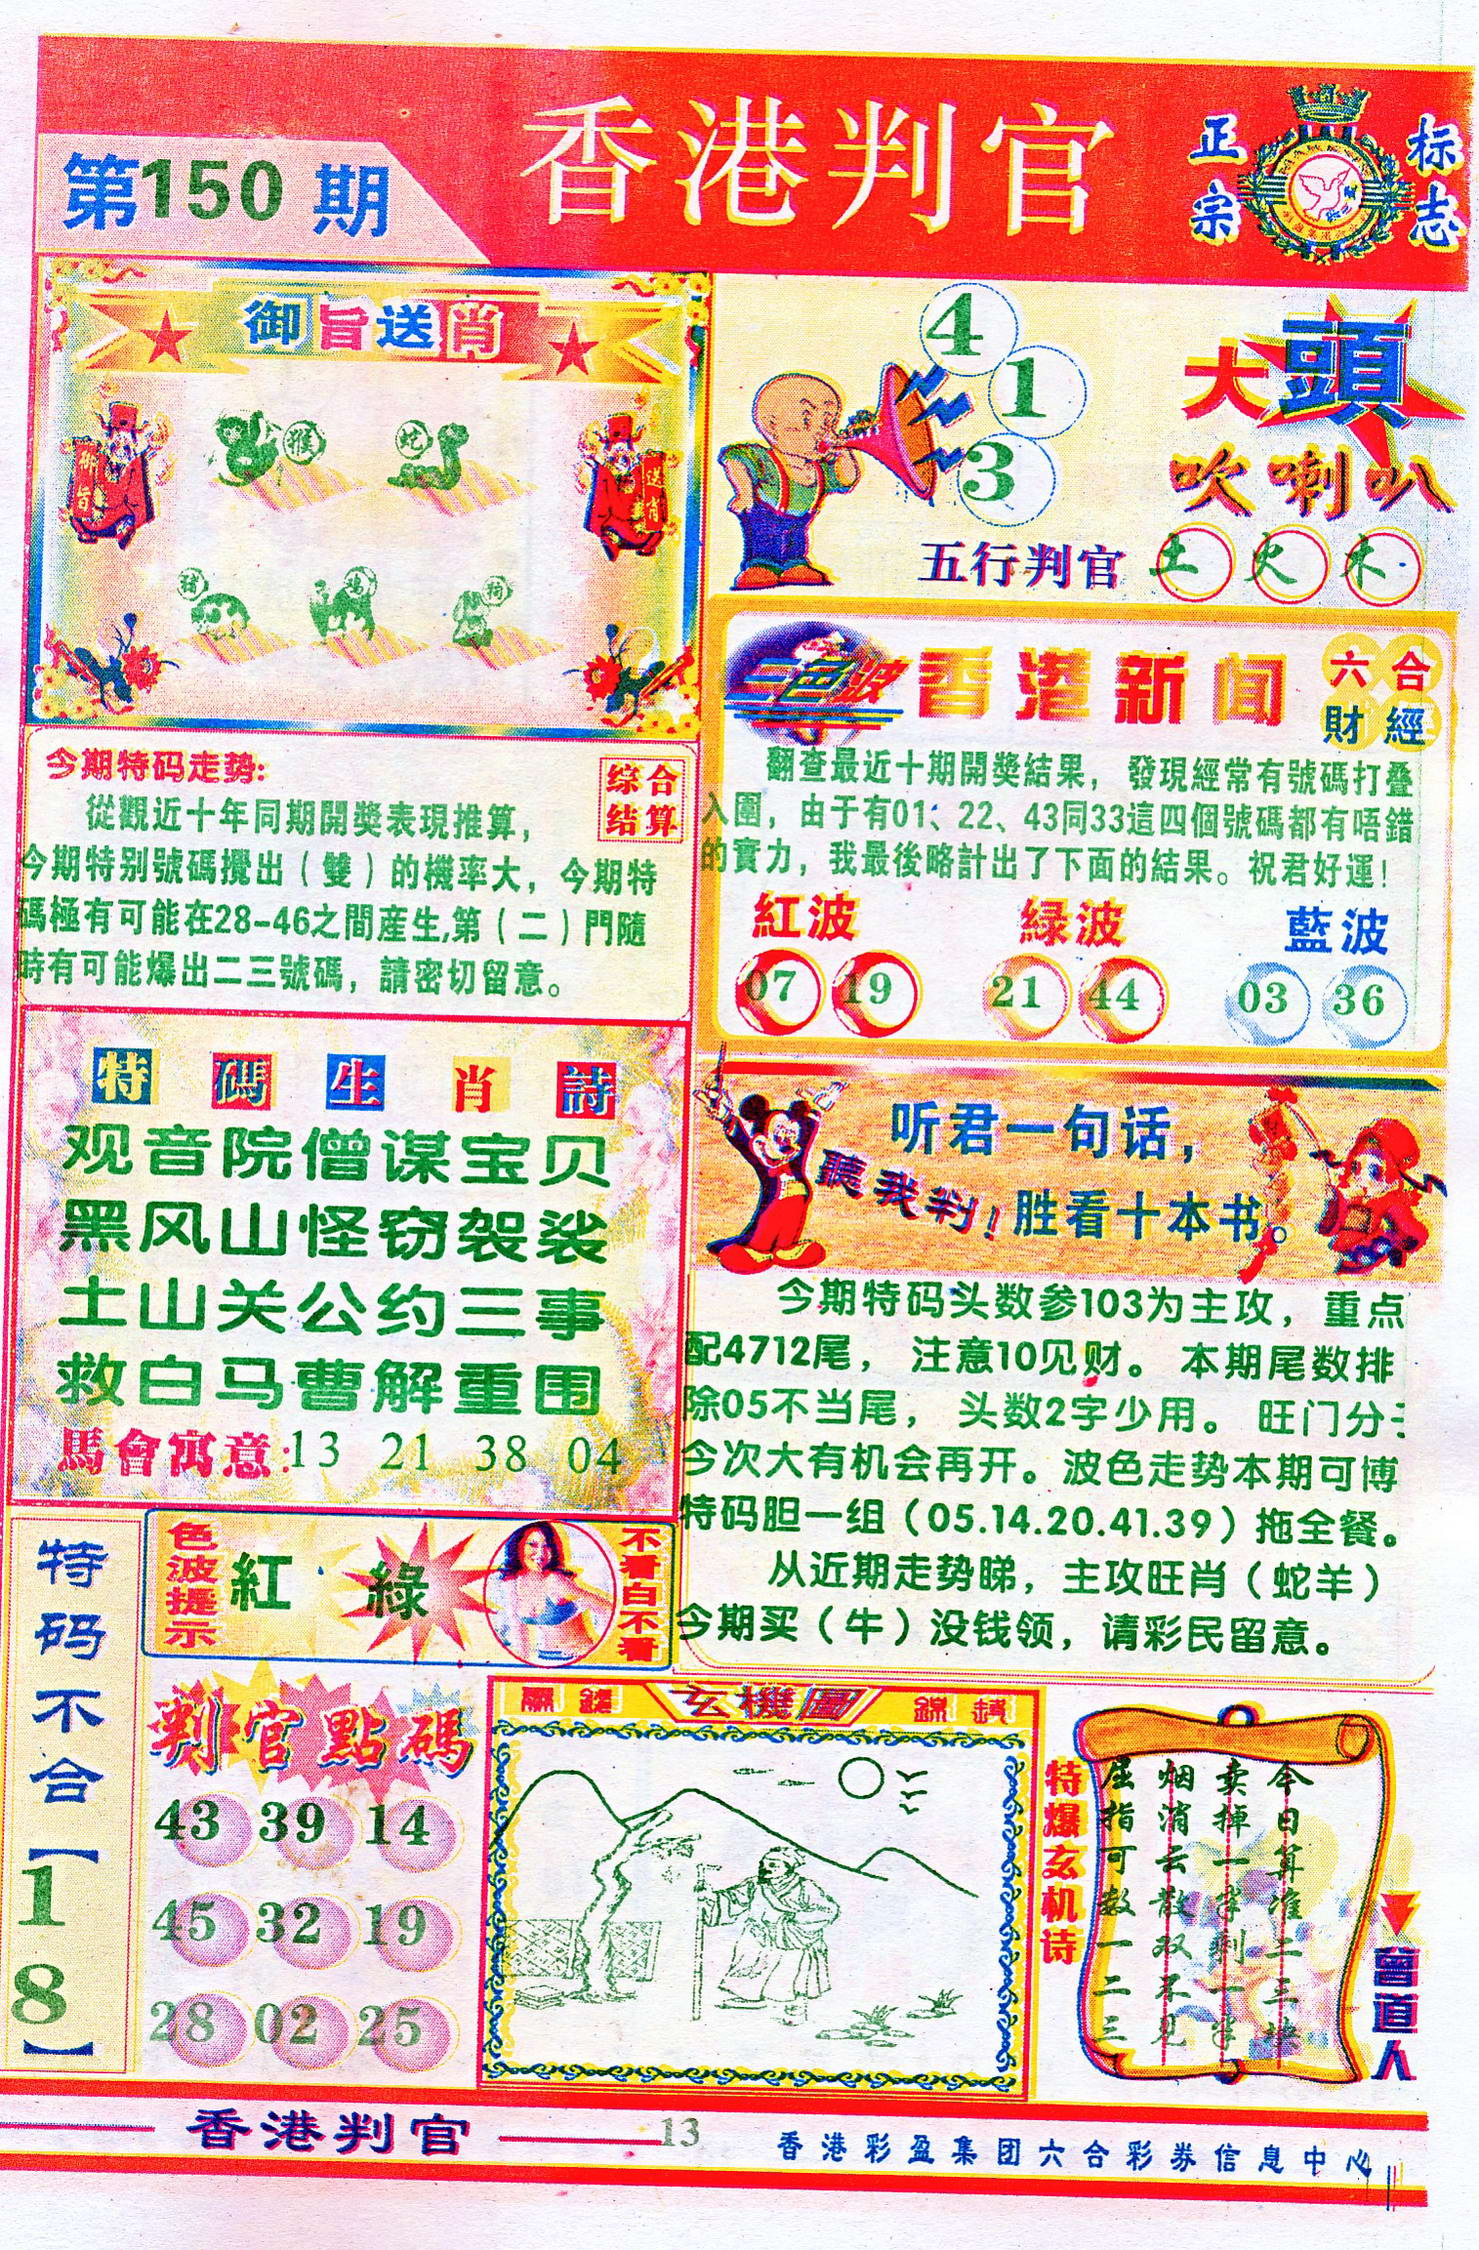 香港判官
第150期
正宗
标志
御旨送肖
猴
蛇
御旨
送肖
猪
鸡
狗
4
1
3
大頭
吹喇叭
五行判官 土 火 木
今期特码走势:
综合
结算
從觀近十年同期開獎表現推算,
今期特别號碼攪出(雙)的機率大,今期特
碼極有可能在28-46之間産生,第(二)門隨
時有可能爆出二三號碼,請密切留意。
三色波 香港新闻
六合
財經
翻查最近十期開獎結果,發現經常有號碼打叠
入圍,由于有01、22、43同33這四個號碼都有唔錯
的實力,我最後略計出了下面的結果。祝君好運!
紅波 緑波 藍波
07 19 21 44 03 36
特碼生肖詩
观音院僧谋宝贝
黑风山怪窃袈裟
土山关公约三事
救白马曹解重围
馬會寓意:13 21 38 04
听君一句话,
聽我判!
胜看十本书。
今期特码头数参103为主攻,重点
配4712尾,注意10见财。本期尾数排
除05不当尾,头数2字少用。旺门分
今次大有机会再开。波色走势本期可博
特码胆一组(05.14.20.41.39)拖全餐。
从近期走势睇,主攻旺肖(蛇羊)
今期买(牛)没钱领,请彩民留意。
特码不合【18】
色波提示
紅 綠
不看白不看
判官點碼
43 39 14
45 32 19
28 02 25
玄機圖
特爆玄机诗
今日算准二三块
卖掉一半剩一半
烟消云散双不见
屈指可数一二三
曾道人
香港判官
13
香港彩盈集团六合彩券信息中心